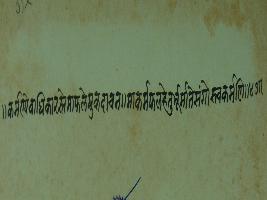 ॥कर्मण्येवाधिकारस्तेमाफलेषुकदाचन॥माकर्मफलहेतुर्भूर्मातेसंगोस्त्वकर्मणि॥४७॥